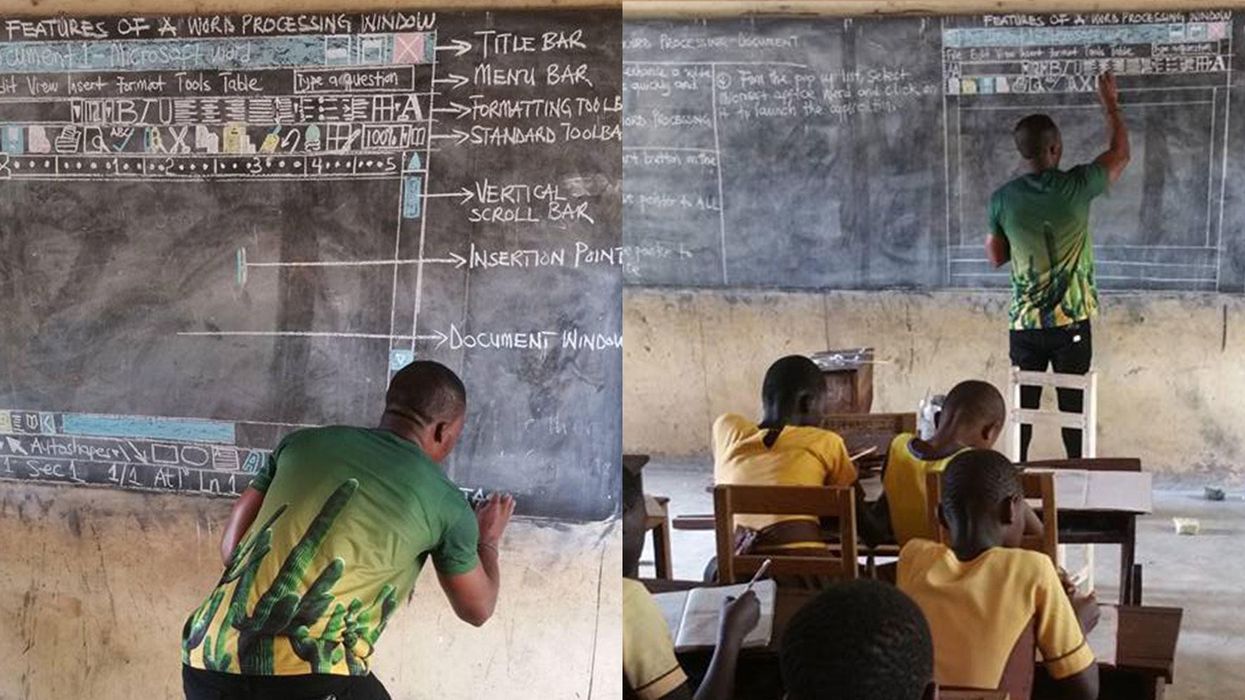 FEATURES OF A WORD PROCESSING WINDOW
Document 1 - Microsoft word
TITLE BAR
Edit View Insert Format Tools Table
Type a question
MENU BAR
B I U
A
FORMATTING TOOLB
ABC
100%
STANDARD TOOLBA
1 2 3 4 5
VERTICAL
SCROLL BAR
INSERTION POINT
DOCUMENT WINDOW
Autoshapes
1 Sec 1 1/1 At 1" Ln 1
STA
FEATURES OF A WORD PROCESSING WINDOW
WORD PROCESSING DOCUMENT
quickly and
WORD PROCESSING
start button on the
pointer to ALL
pointer to
④ From the pop up list, select
Microsoft office word and click on
it to launch the application.
Edit View Insert Format Tools Table
Type a question
B I U
A